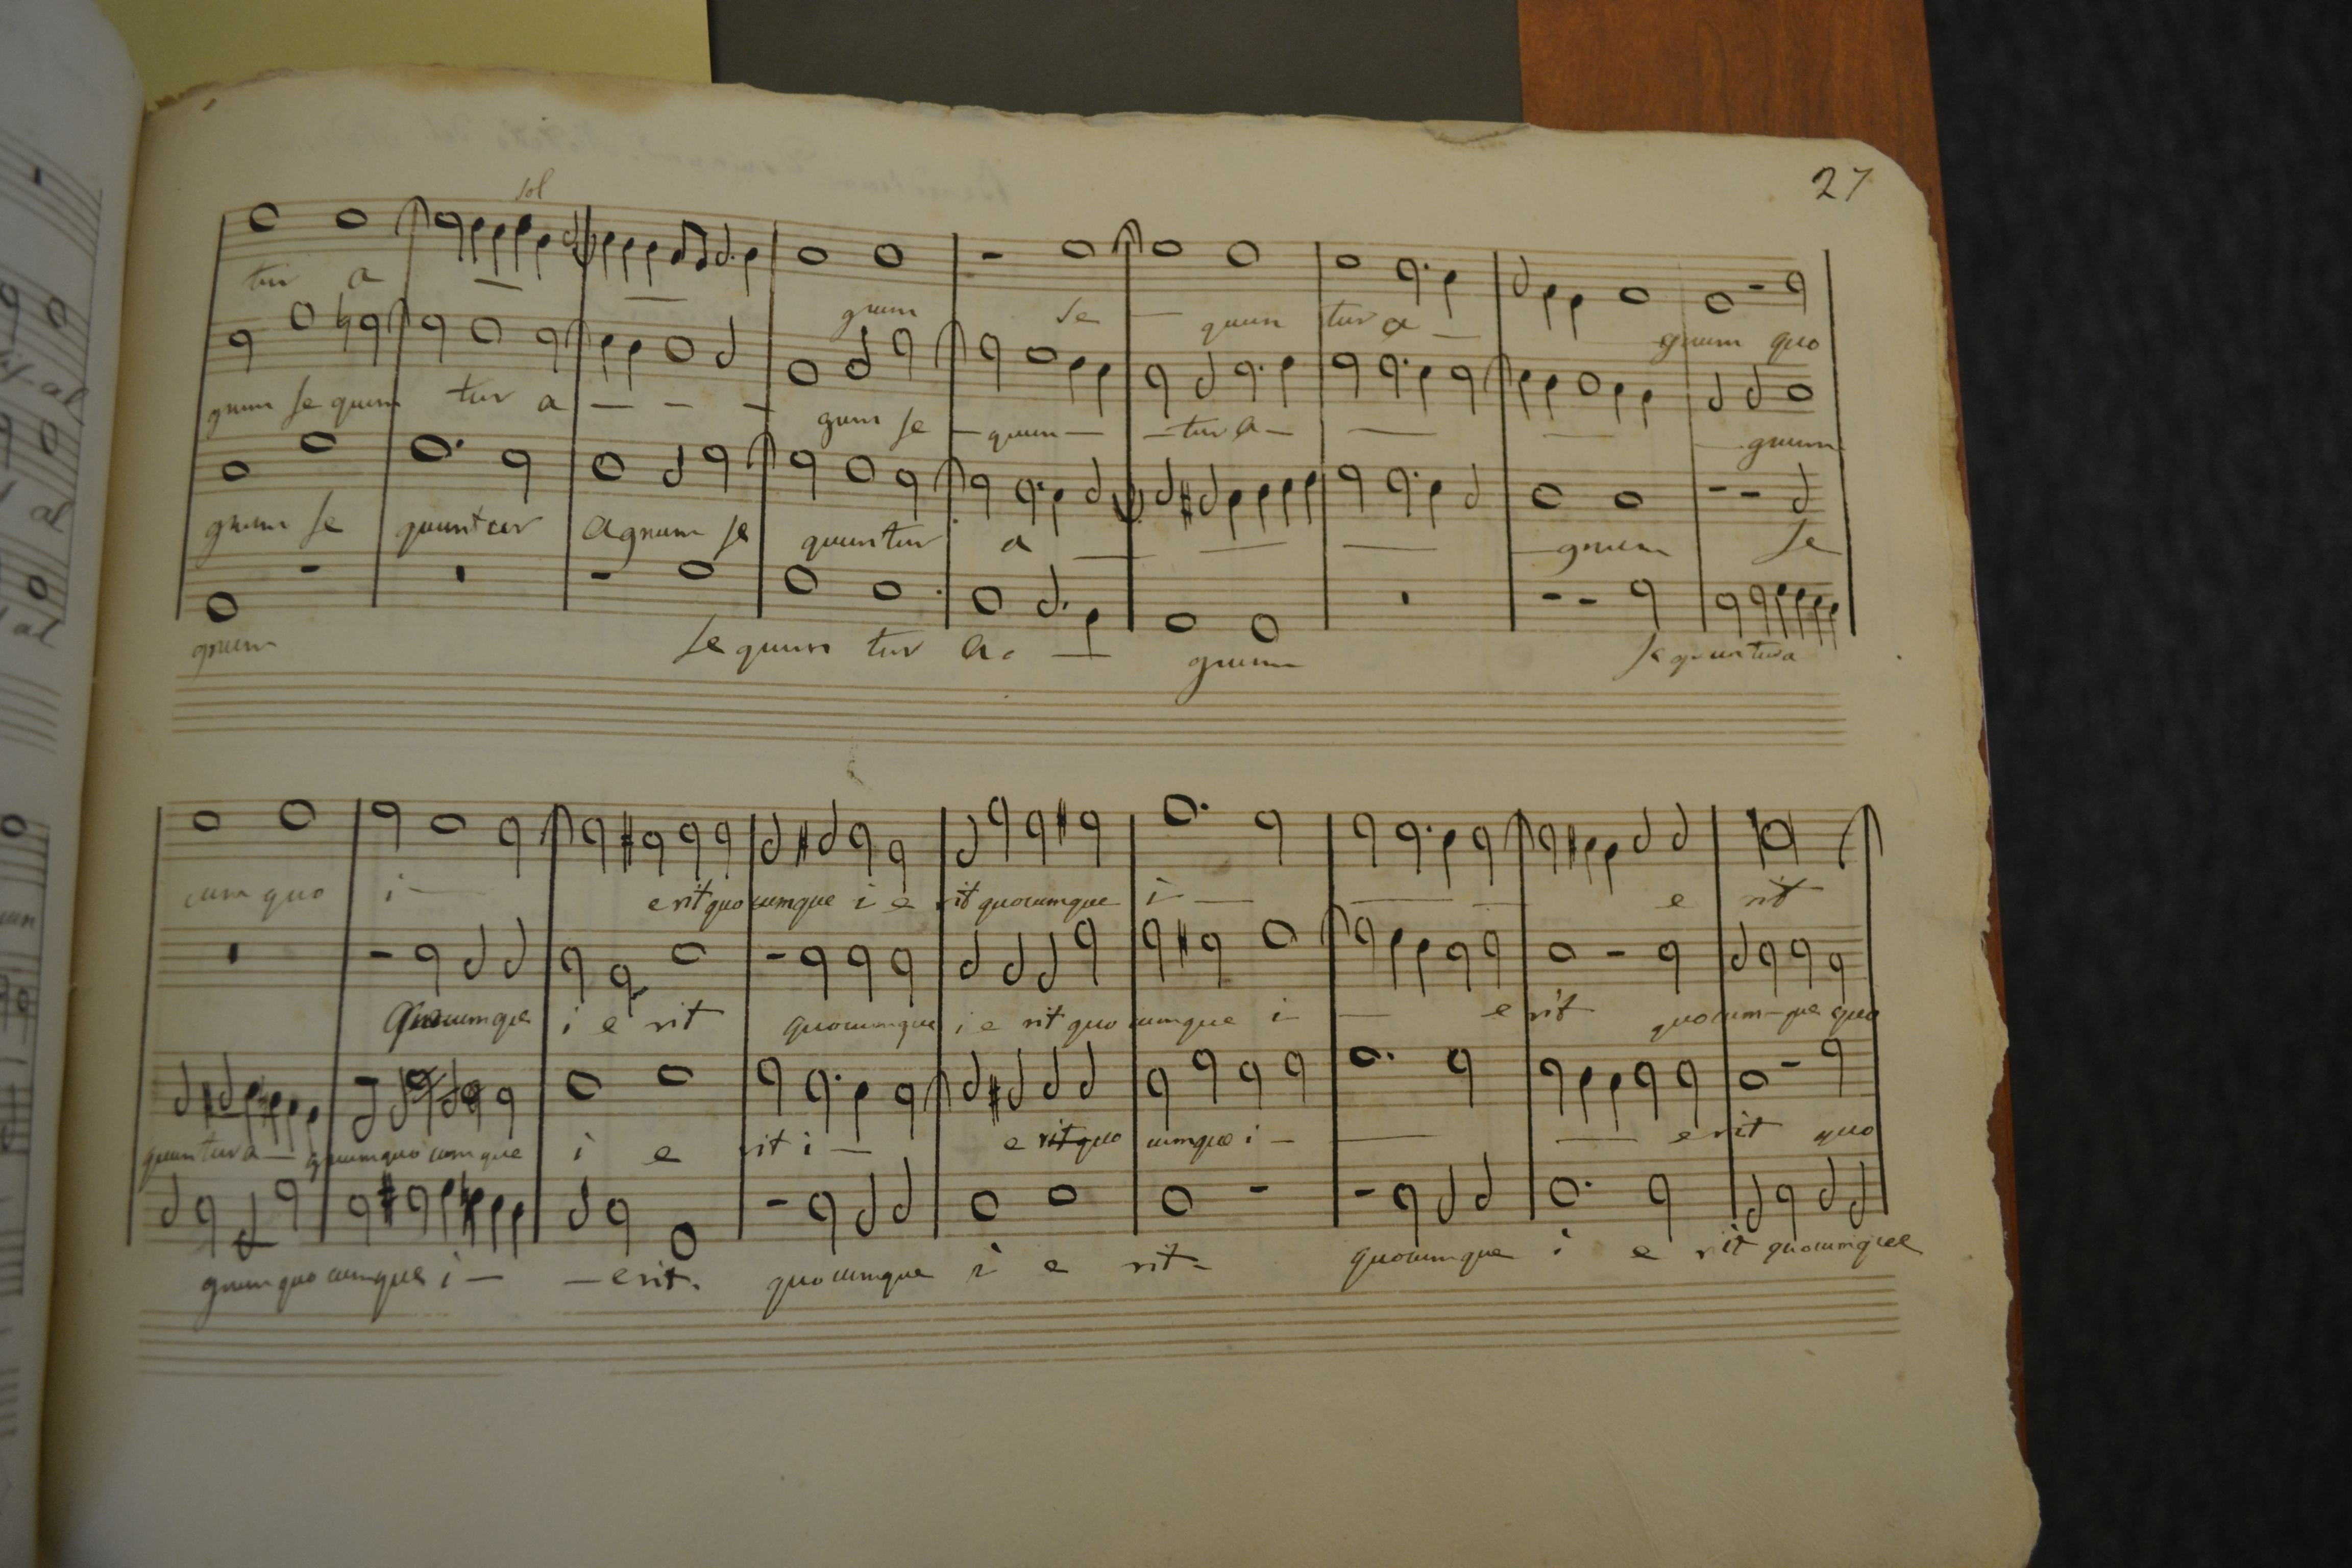 27
sol
tur a — — gnum Se — quun tur a — gnum quo
gnum se quun tur a — — — gnum se — quun — — tur a — — — — gnum
gnum se quuntur agnum se quuntur a — — — — gnum Se
gnum Se quun tur a — gnum Se quuntura
cum quo i — erit quocumque i e rit quocumque i — — — e rit
Quocumque i e rit quocumque i e rit quo cumque i — erit quocum-que quo
quuntura — gnum quocumque i e rit i — e rit quo cumque i — — — erit quo
gnum quo cumque i — — erit. quocumque i e rit - quocumque i e rit quocumque